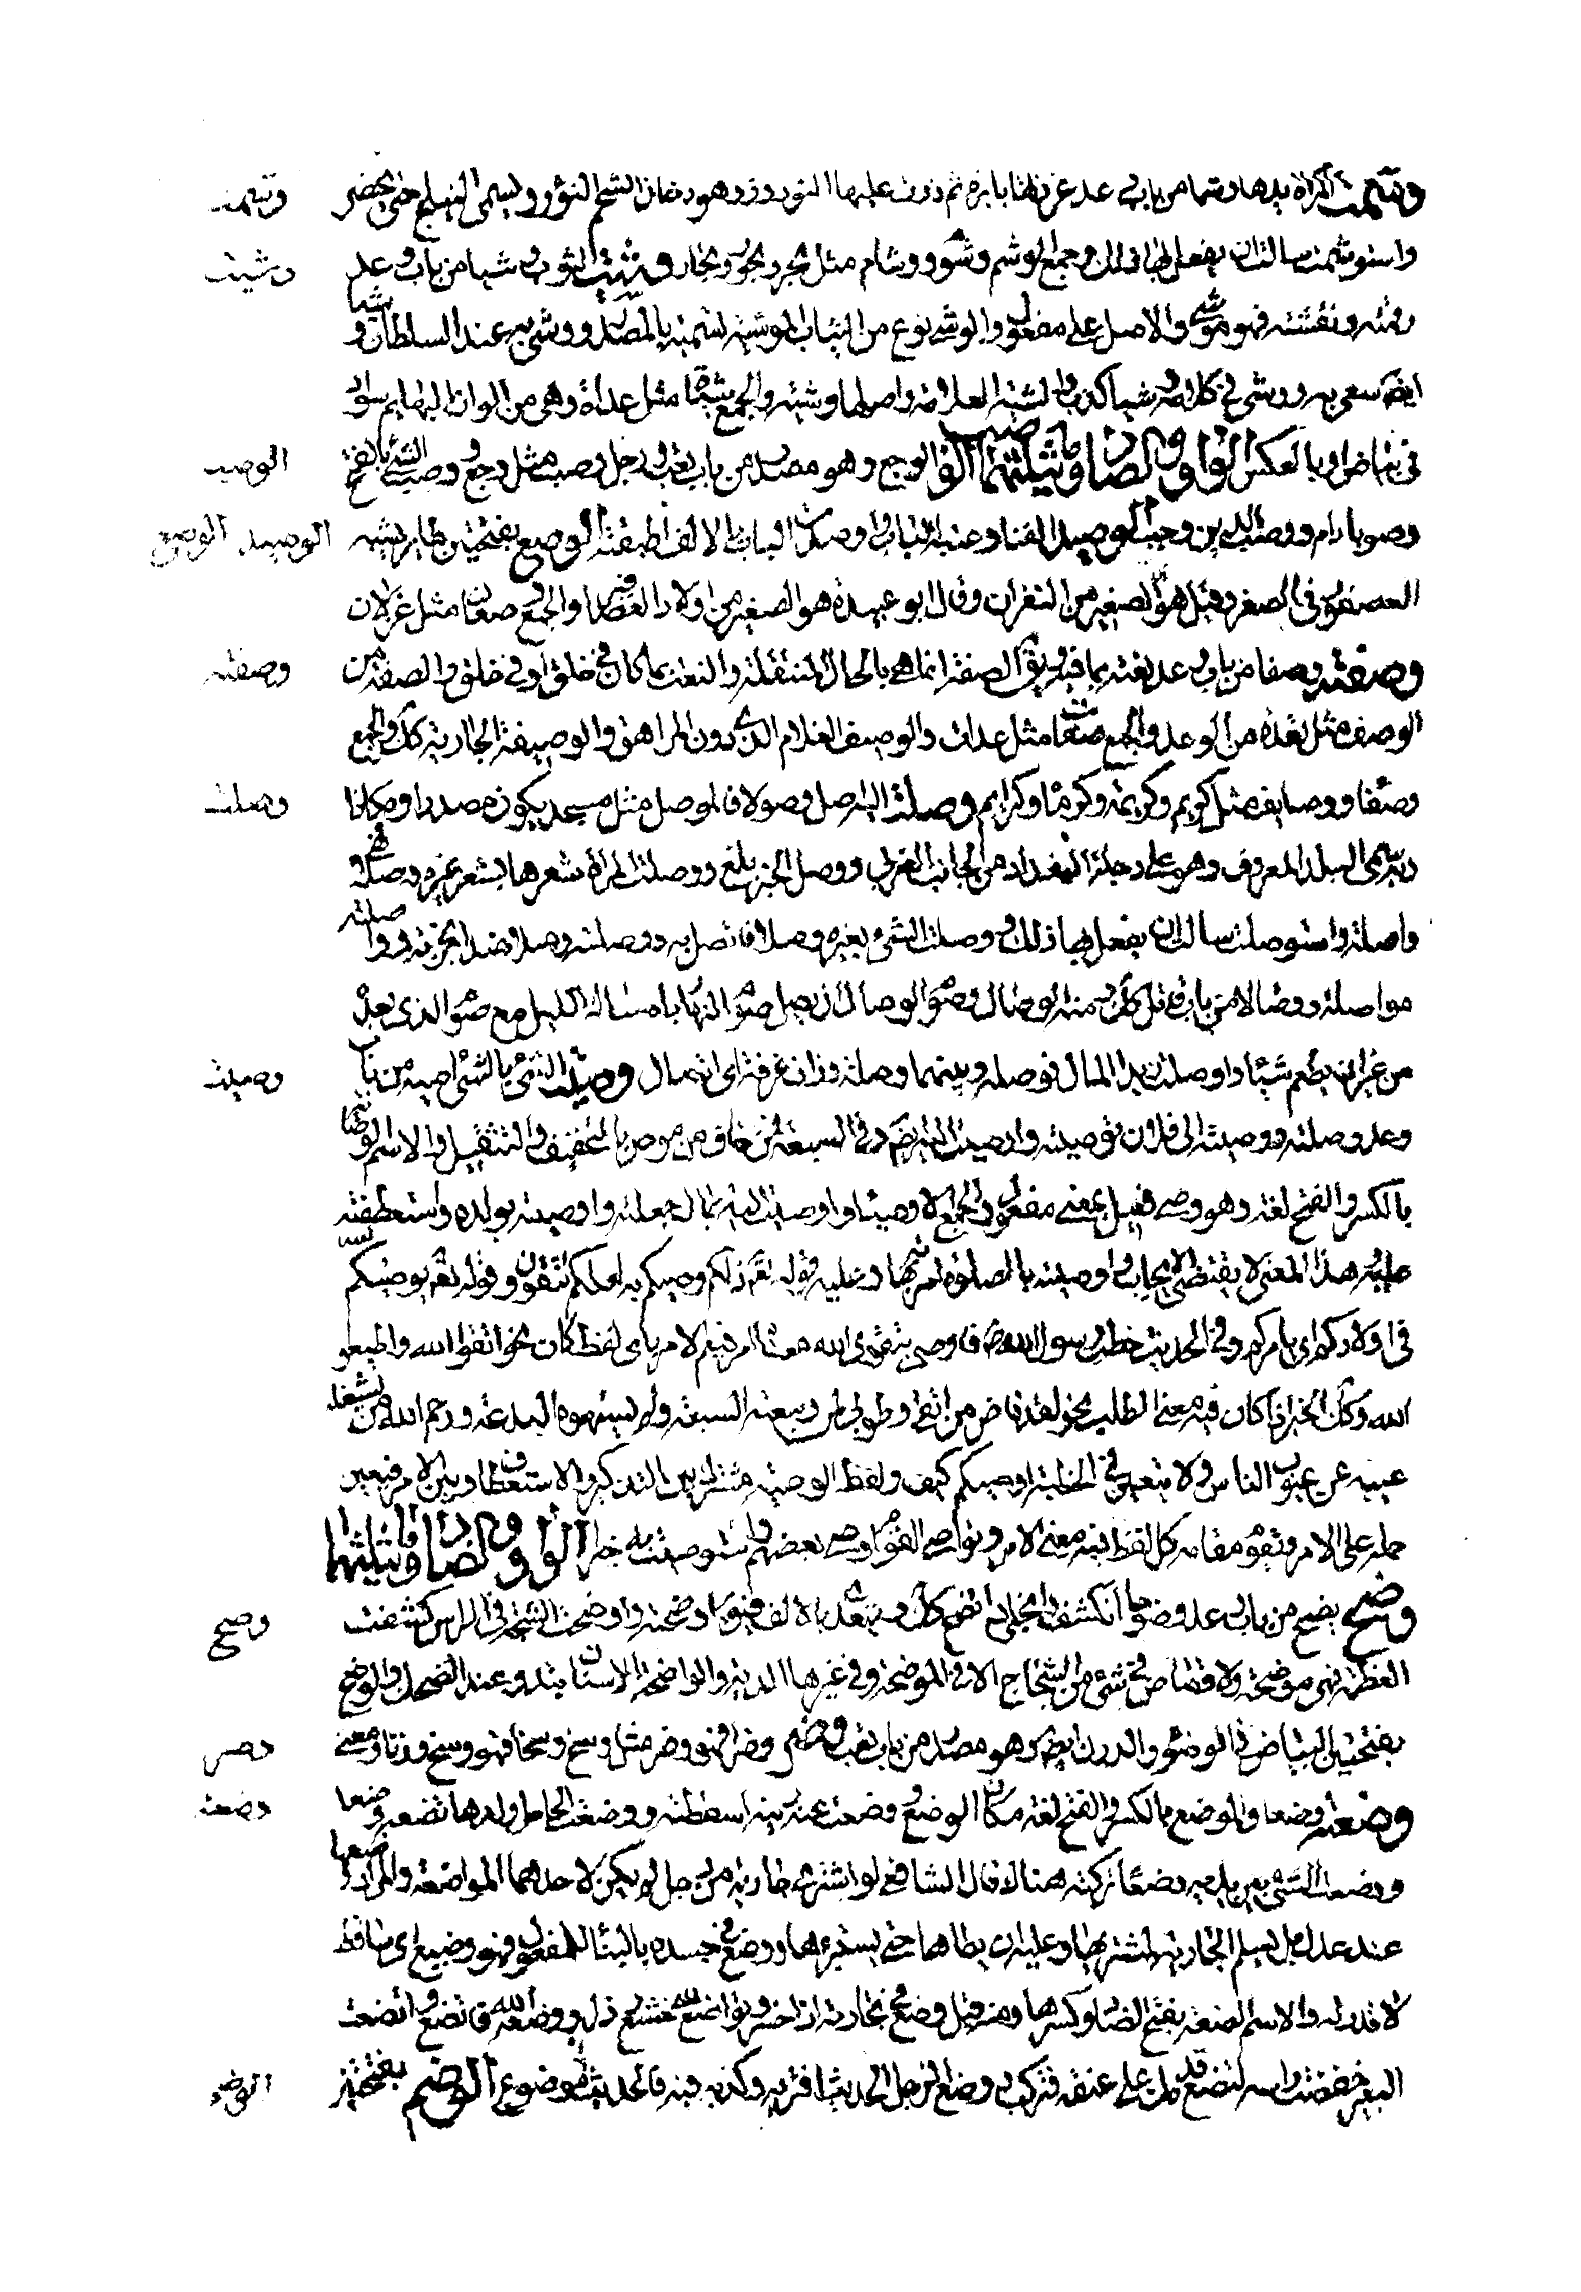 وشمت المراة يدها وشما من باب وعد غرزتها بابرة ثم ذرت عليها النورور وهو دخان الشحم النؤور ويسمى النيلج حتى يخضر وشمت
واستوشمت سالت ان يفعل بها ذلك وجمع الوشم وشوم ووشام مثل بحر وبحور وبحار وشيت الثوب وشيا من باب وعد وشيت
رقمته ونقشته فهو موشى والاصل على مفعول والوشى نوع من الثياب الموشية تسمية بالمصدر ووشى به عند السلطان وشيا
ايضا سعى به ووشى فى كلامه وشيا كذب والشية العلامة واصلها وشية والجمع شيات مثل عداة وهى من الوان البهايم سواد
فى بياض او بالعكس الواو والصاد وما يثلثهما الوصب الوجع وهو مصدر من باب تعب ورجل وصب مثل وجع ووصب الشئ بالفتح الوصب
وصوبا دام ووصب الدين وجب الوصيد الفناء وعتبة الباب واوصدت الباب بالالف اطبقته الوصع بفتحتين طاير يشبه الوصيد الوصع
العصفور فى الصغر وقيل هو الصغير من النغران وقال ابو عبيدة هو الصغير من اولاد العصافير والجمع وصعان مثل غزلان
وصفته وصفا من باب وعد نعته بما فيه ويق الصفة انما هى بالحال المنتقلة والنعت بما كان فى خلق او فى خلق والصفة من وصفته
الوصف مثل العدة من الوعد والجمع صفات مثل عدات والوصيف الغلام الذى دون المراهق والوصيفة الجارية كك والجمع
وصفاء ووصايف مثل كريم وكريمة وكرماء وكرايم وصلت اليه اصل وصولا والموصل مثل مسجد يكون مصدرا ومكانا وصلت
وبه سمى البلد المعروف وهو على دجلة بغداد من الجانب الغربى ووصل الخبر بلغ ووصلت المراة شعرها بشعر غيره وصلا فهى
واصلة واستوصلت سالت ان يفعل بها ذلك ووصلت الشئ بغيره وصلا فاتصل به ووصلته وصلا وصلة ضد هجرته وواصلته
مواصلة ووصالا من باب قاتل كك ومنه الوصال وصوم الوصال ان يصل صوم النهار بامساك الليل مع صوم الذى بعده
من غير ان يطعم شيئا واوصلت زيدا المال فوصله وبينهما وصلة وزان غرفة اى اتصال وصيت الشئ بالشئ اصيه من باب وصيت
وعد وصلته ووصيت الى فلان توصية واوصيت اليه ايضا وفى السبعة فمن خاف من موص بالتخفيف والتثقيل والاسم الوصاية
بالكسر والفتح لغة وهو وصى فعيل بمعنى مفعول والجمع الاوصياء واوصيت اليه بمال جعلته واوصيته بولده واستعطفته
عليه هذا المعنى لا يقتضى الايجاب واوصيته بالصلوة امرته بها وعليه قوله تعم ذلكم وصيكم به لعلكم تتقون وقوله تعم يوصيكم الله
فى اولادكم اى يامركم وفى الحديث خطب رسول الله ص فاوصى بتقوى الله معناه امر فيعم الامر باى لفظ كان نحو اتقوا الله واطيعوا
الله وكك الخبر اذا كان فيه معنى الطلب نحو لقد فاز من اتقى وطوبى لمن وسعته السنة ولم تستهوه البدعة ورحم الله من شغله
عيبه عن عيوب الناس ولا يتعين فى الخطبة اوصيكم كيف ولفظ الوصية مشترك بين التذكير والاستعطاف وبين الامر فيتعين
حمله على الامر وتقوم مقامه كل لفظ فيه معنى الامر وتواصى القوم اوصى بعضهم بعضا واستوصيت به خيرا الواو والضاد وما يثلثهما
وضح يضح من باب وعد وضوحا انكشف وانجلى واتضح كك ويتعدى بالالف فيق اوضحته واوضحت الشجة فى الراس كشفت وضح
العظم فهى موضحة ولا قصاص فى شئ من الشجاج الا فى الموضحة وفى غيرها الدية والواضحة الاسنان تبدو عند الضحك والوضح
بفتحتين البياض فى الوضوء والدرن ايضا وهو مصدر من باب تعب وضر وضرا فهو وضر مثل وسخ وسخا فهو وسخ وزنا ومعنى وضر
وضعته وضعا والموضع بالكسر والفتح لغة مكان الوضع وضعت عنه دينه اسقطته ووضعت الحامل ولدها تضعه وضعا وضعته
ووضعت الشئ بين يديه وضعا تركته هناك قال الشافعى لو اشترى جارية من رجل لم يكن لاحدهما المواضعة والمراد وضعها
عند عدل بل يسلم الجارية لمشتريها وعليه ان لا يطاها حتى يستبرئها ووضع فى حسبه بالبناء للمفعول فهو وضيع اى ساقط
لا قدر له والاسم الضعة بفتح الضاد وكسرها ومنه قيل وضع فى تجارته اذا خسر وتواضع لله خشع وذل ووضعه الله فاتضع واتضعت
البعير خفضت راسه لتضع قدمك على عنقه فتركب ووضع الرجل الحديث افتريه وكذب فيه فالحديث موضوع الوضم بفتحتين الوضم